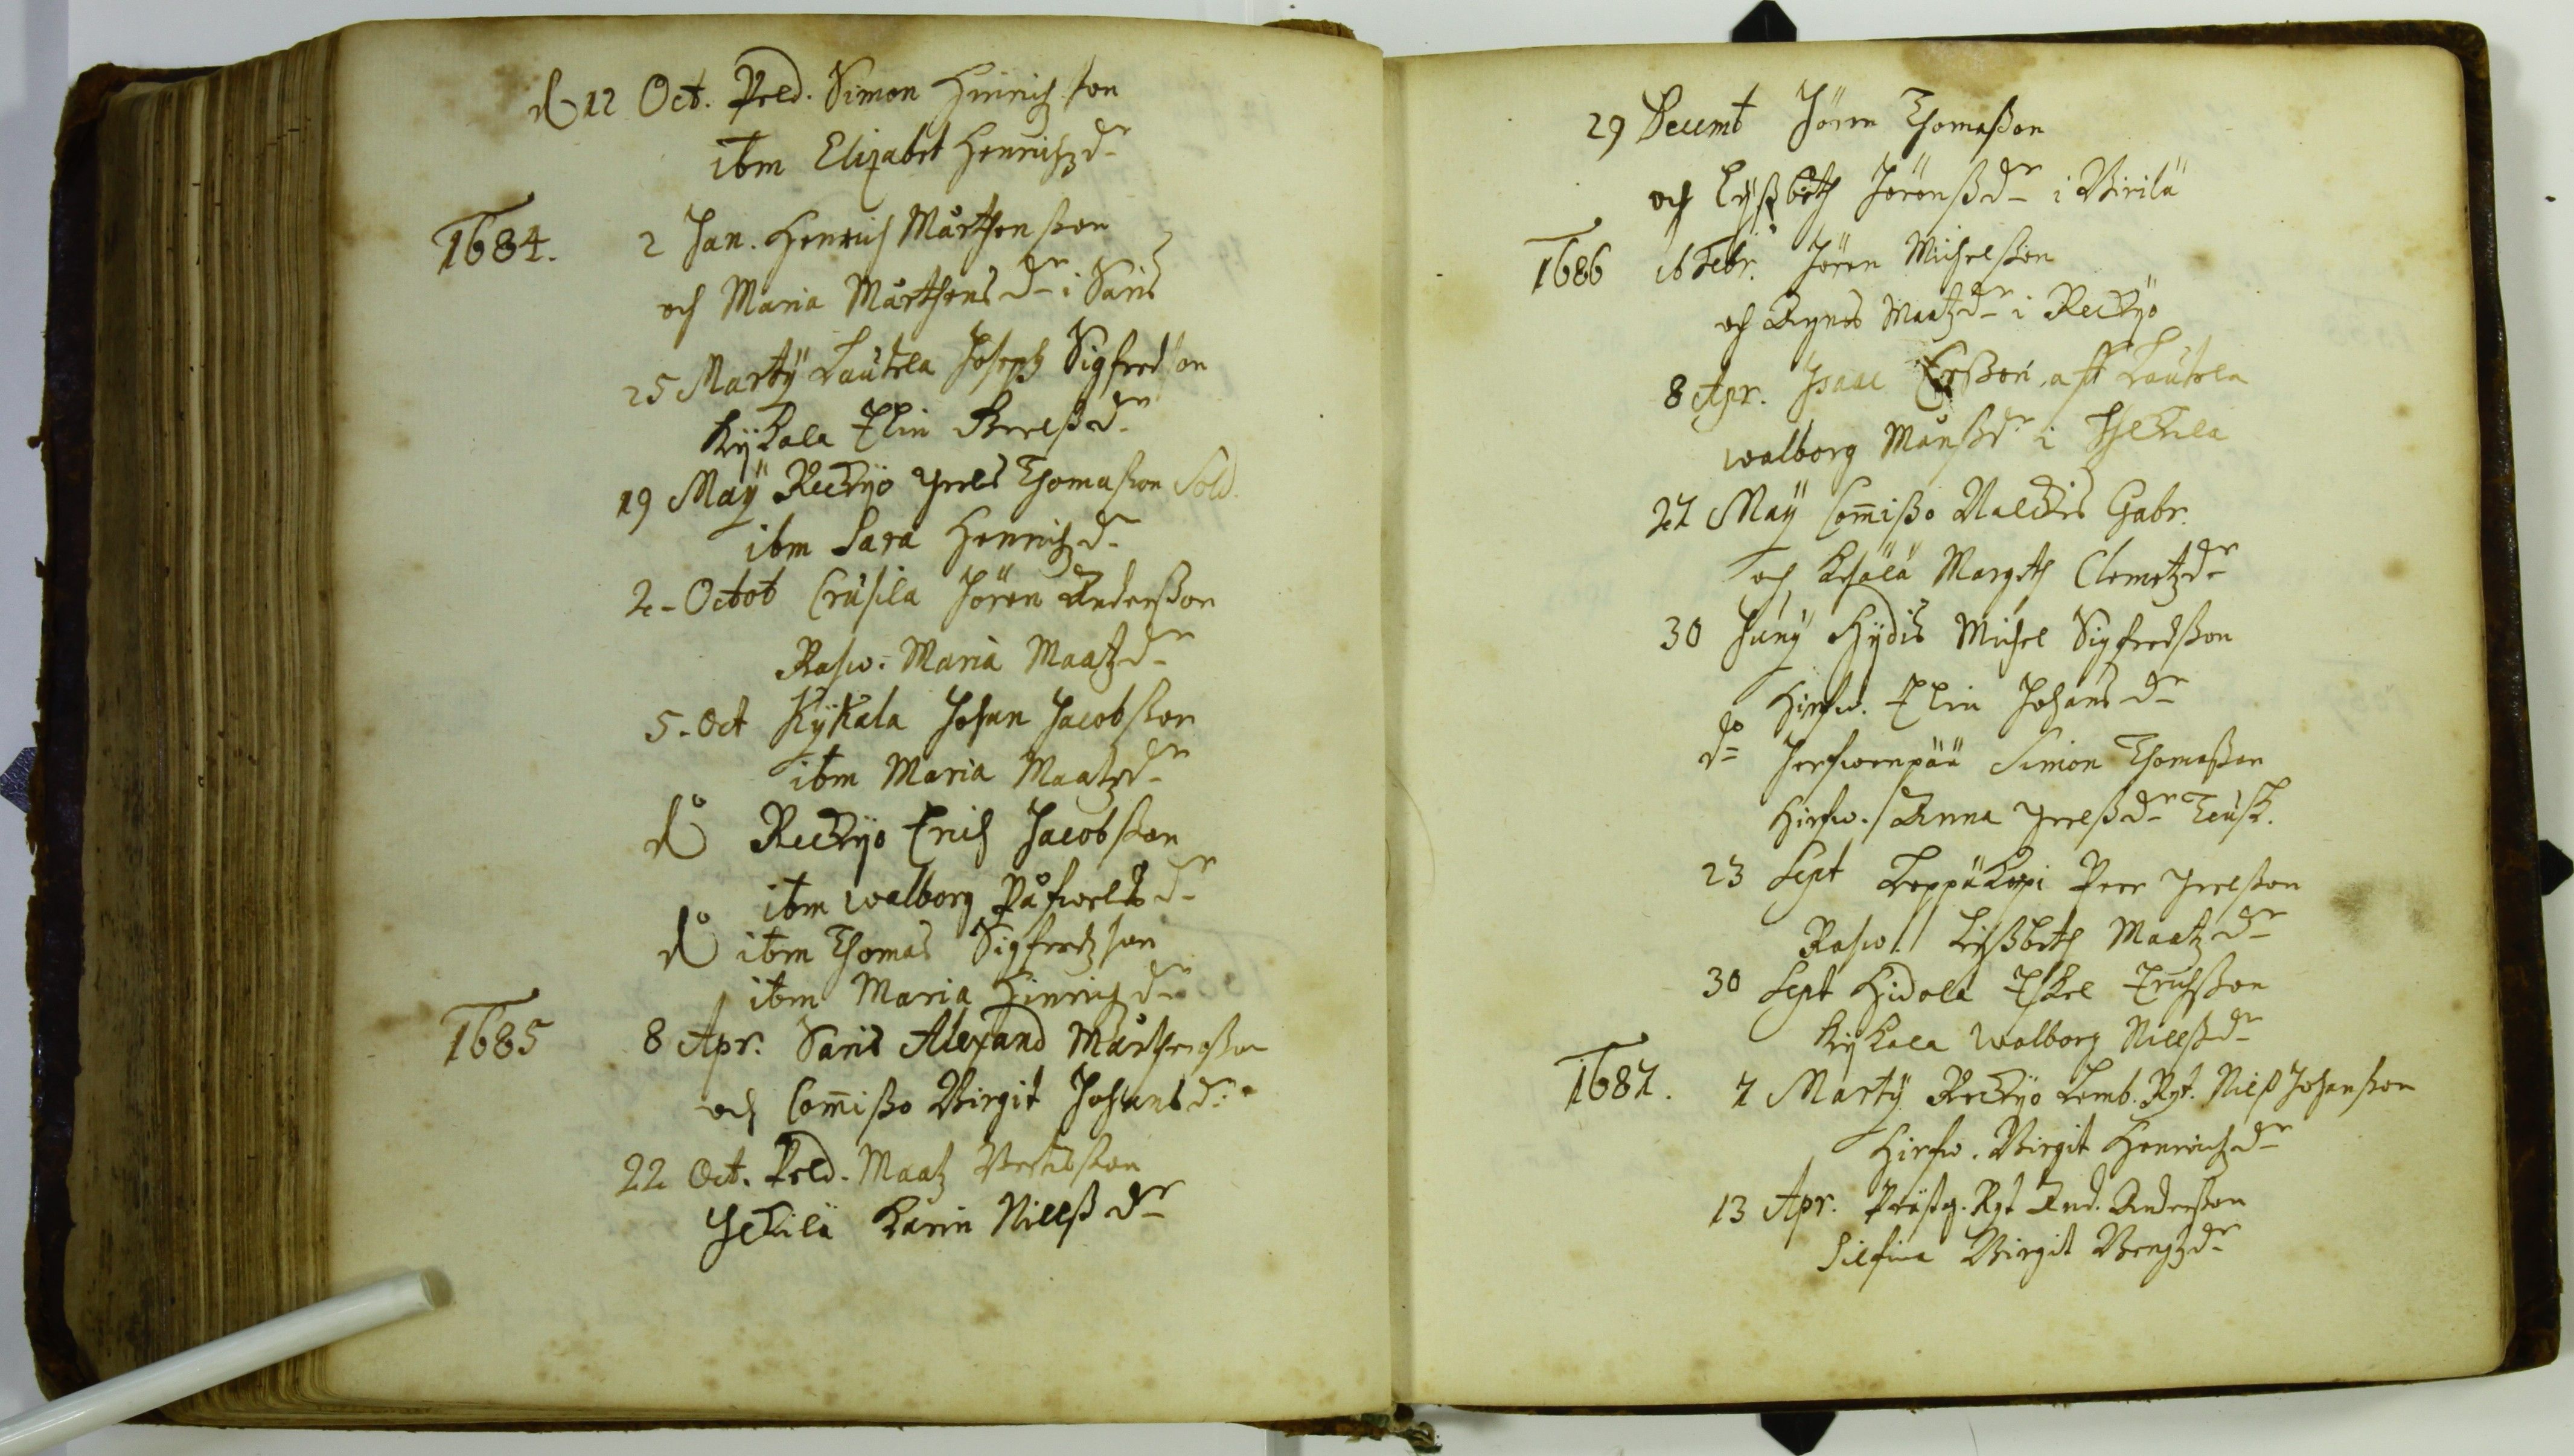 d 12 Oct. Peld. Simon Hinrichson
ibm Elizabet Henrichzdr
1684. 2 Jan. Henrich Mårthensson
och Maria Mårthensdr i Saris
25 Martÿ Lautela Joseph Sigfredson
Kÿkala Elin Perlßdr
19 Maÿ Reckÿo Yrels Thomasson Sold.
ibm Sara Henrichzdr
2 - Octob Crusila Jören Anderßon
Rasw. Maria Maatzdr
5 - Oct Kÿkala Johan Jacobsson
ibm Maria Maatzdr
do Reckÿo Erich Jacobsson
ibm Walborg Påfwelsdr
do ibm Thomas Sigfredzson
ibm Maria Hinrichzdr
1685 8 Apr. Saris Alexand Mårthenßon
och Com̅ißo Birgit Johansdr
22 Oct. Peld. Maatz Bertilsson
Heckilä Karin Nillßdr
29 Decemb Jören Thomaßon
och Lÿßbeth Jörenßdr i Virilä
1686 16 Febr. Jören Michelßon
och Agnes Maatzdr i Reckÿö
8 Apr. Isaac Erßon aff Lautela
Walborg Månßdr i Heckila
27 Maÿ Com̅ißo Valckis Gabr.
och Kesälä Margeth Clemetzdr
30 Junÿ Hÿdis Michel Sigfredßon
Hirfw. Elin Johansdr
do Jerfwenpää Simon Thomaßon
Hirfw. Anna Yrelßdr Teusk.
23 Sept Leppäkopi Peer Yrelßon
Rasw. Lÿßbeth Maatzdr
30 Sept Hidola Eskel Erichßon
Kÿkala Walborg Nillßdr
1687. 7 Martÿ Reckÿo Lemb. Ryt. Nilß Johanßon
Hirfw. Birgit Henrichzdr
13 Apr. Prästg. Ryt And. Anderßon
Silfina Birgit Bengtzdr